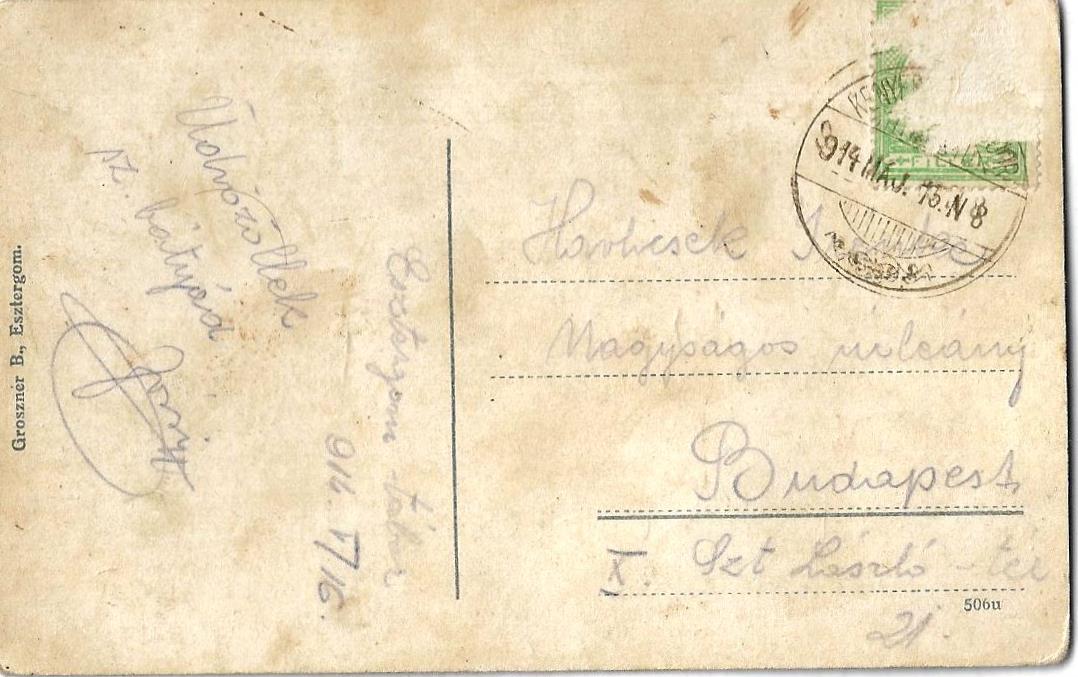 Esztergom-tábor
914. V/16.
Üdvözöllek
sz. bátyád
Groszner B., Esztergom.
914 MÁJ. 15. N 8
FILLÉR
Nagyságos úrleány
Budapest
X. Szt László-tér
21.
506u